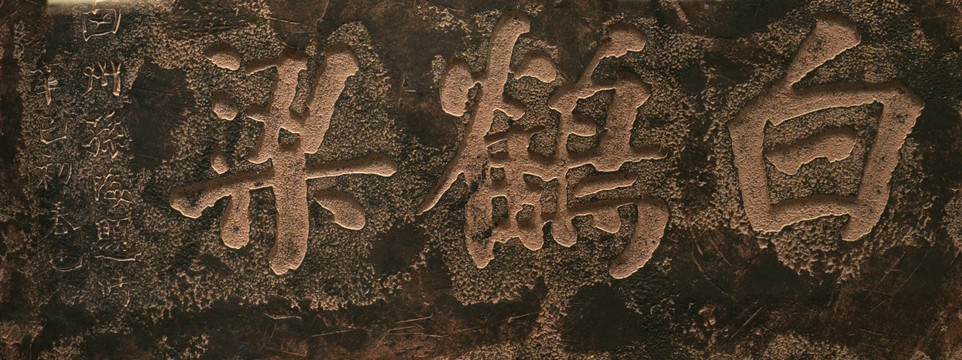 白鶴梁
州孫海題
辛巳初春